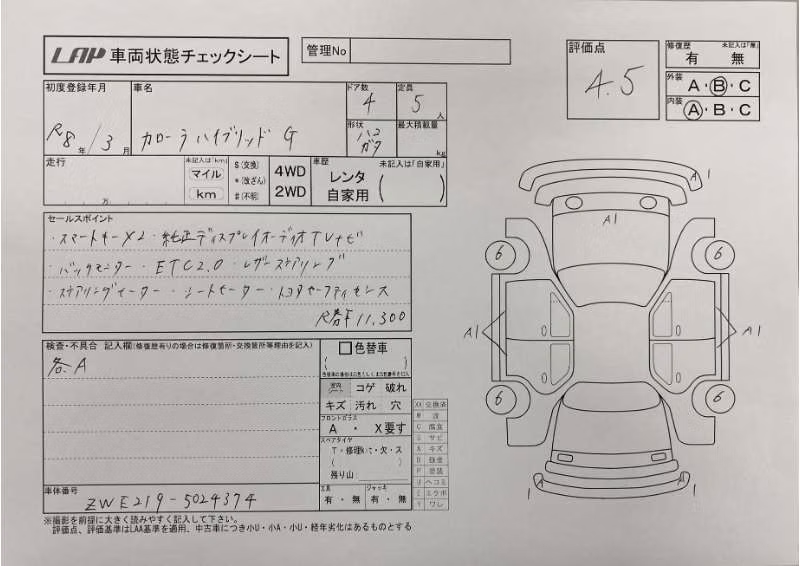 LAA 車両状態チェックシート
管理No
評価点
4.5
修復歴 未記入は「無」
有 無
外装
A・B・C
内装
A・B・C
初度登録年月
R8年/3月
車名
カローラハイブリッド G
ドア数
4
定員
5人
形状
ハコ
最大積載量
kg
走行
万
未記入は「km」
マイル
km
$(交換)
*(改ざん)
#(不明)
4WD
2WD
車歴
レンタ
自家用
未記入は「自家用」
セールスポイント
・スマートキーX2・純正ディスプレイオーディオTVナビ
・バックモニター・ETC2.0・レザーステアリング
・ステアリングヒーター・シートヒーター・トヨタセーフティセンス
11,300
検査・不具合 記入欄(修復歴有りの場合は修復箇所・交換箇所等理由を記入)
各A
色替車
室内
コゲ 破れ
キズ 汚れ 穴
フロントガラス
A ・ X要す
スペアタイヤ
残り山
工具
有・無
ジャッキ
有・無
XX 交換済
W 波
C 腐食
S サビ
A キズ
P 塗装
U ヘコミ
Y ワレ
車体番号
ZWE219-5024374
※撮影を前提に大きく読みやすく記入して下さい。
評価点、評価基準はLAA基準を適用、中古車につき小U・小A・小U・経年劣化はあるものとする
A1
A1
6
6
A1
A1
6
6
1
1